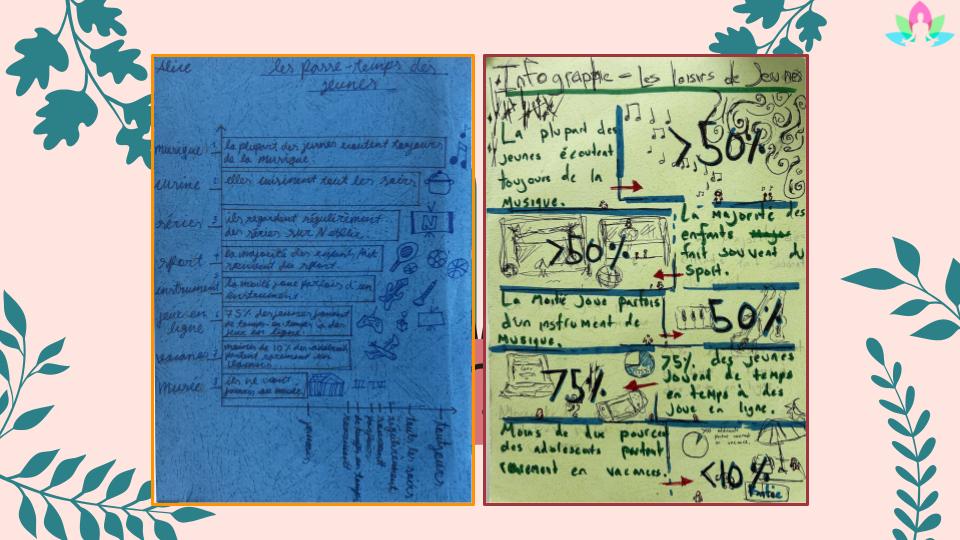 Alice les passe-temps des
jeunes
musique 1 la plupart des jeunes écoutent toujours
de la musique.
cuisine 2 elles cuisinent tout les soirs
séries 3 ils regardent régulièrement
des séries sur Netflix.
N
sport 4 la majorité des enfants fait
souvent du sport.
instrument 5 la moitié joue parfois d'un
instrument
jeux en
ligne 6 75% des jeunes jouent
de temps en temps à des
jeux en ligne.
vacances 7 moins de 10% des adolescents
partent rarement en
vacances.
musée 8 ils ne vont
jamais au musée.
jamais
rarement
de temps en temps
parfois
souvent
régulièrement
touts les soirs
toujours
Infographie - Les loisirs de Jeunes
La plupart des
jeunes écoutent
toujours de la
musique.
>50%
>50%
La majorité des
enfants
fait souvent du
sport.
La Moitié Joue parfois
d'un instrument de
musique.
50%
75%
75% des jeunes
Jouent de temps
en temps à des
Joue en ligne.
Moins de dix pourcen
des adolescents partent
rarement en vacances.
<10%